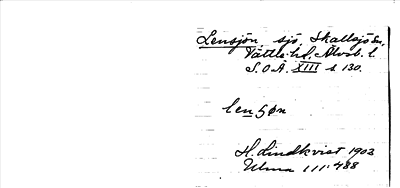 Lensjön sjö. Skallsjö sn,
Vättle hd, Älvsb. l.
S.O.Ä. XIII s. 130.
lensøn
H. Lindkvist 1903
Ulma 111:488